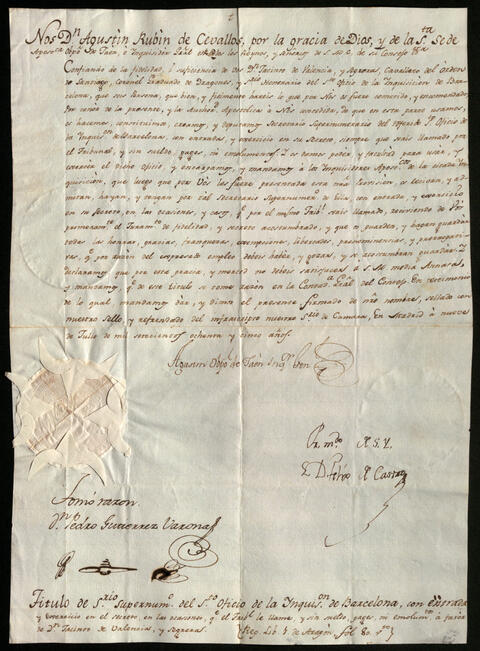 Nos Dn. Agustin Rubin de Cevallos, por la gracia de Dios, y de la Sta. Sede
Aposca. Obpo. de Jaen, è Inquisidor Gral. en los Reynos, y Señorios de S.M. de su Consejo &a.
Confiando de la fidelidad, i suficiencia de vos Dn. Jacinto de Valencia, y Segreras, Cavallero del orden
de Santiago, coronel Graduado de Dragones, Secretario del Sto. Oficio de la Inquisicion de Bar-
celona, que sois Persona, que bien, y fielmente hareis lo que por Nos os fuere cometido, y encomendado;
Por tenor de la presente, y la Authorid. Apostolica à Nos concedida, de que en esta parte usamos,
os hacemos, constituimos, creamos, y deputamos Secretario Supernumerario del referido Sto. Oficio de
la Inquison. de Barcelona, con entrada, y exercicio en su Secreto, siempre que seais llamado por
el Tribunal, y sin sueldo, gages, ni emolumentos. Y os damos poder, y facultad para usar, y
exercer el dicho oficio, y encargamos, y mandamos à los Inquisidores Aposcos. de la citada In-
quisicion, que luego que por Vos les fuere presentada esta nña Provision, os reciban, y ad-
mitan, hayan, y tengan por tal Secretario Supernumero. de ella, con entrada, y exercicio
en su Secreto, en las ocasiones, y casos, q. por el mismo Tribl. seais llamado, reciviendo de Vos
primeramte. el Juramto. de fidelidad, y secreto acostumbrado, y que os guarden, y hagan guardar
todas las honras, gracias, franquezas, exempciones, libertades, preeminencias, y prerrogati-
vas, q. por razon del expresado empleo debeis haber, y gozar, y os acostumbran guardar. Y
declaramos que por esta gracia, y merced no debeis satisfacer à S.M. media Annata,
y mandamos q. de este titulo se tome razon en la Contad. Gral. del Consejo. En testimonio
de lo qual, mandamos dar, y dimos el presente firmado de nño nombre, sellado con
nuestro sello, y refrendado del infraescripto nuestro Srio. de Camara. En Madrid à nueve
de Julio de mil setecientos ochenta y cinco años.
Agustin Obpo de Jaen Inqr. Gen
Pr. mdo. de S. I.
D. Felipe de Castro
Tomó razon.
Dn. Pedro Gutierrez Varona
Titulo de Srio Supernumo. del Sto. Oficio de la Inquison. de Barcelona, con entrada
y exercicio en el secreto, en las ocasiones, q. el Tribl. le llame, y sin sueldo, gages, ni emolumtos. a favor
de Dn. Jacinto de Valencia, y Segreras. Reg. Lib. 4. de Aragon, fol. 80. vto.